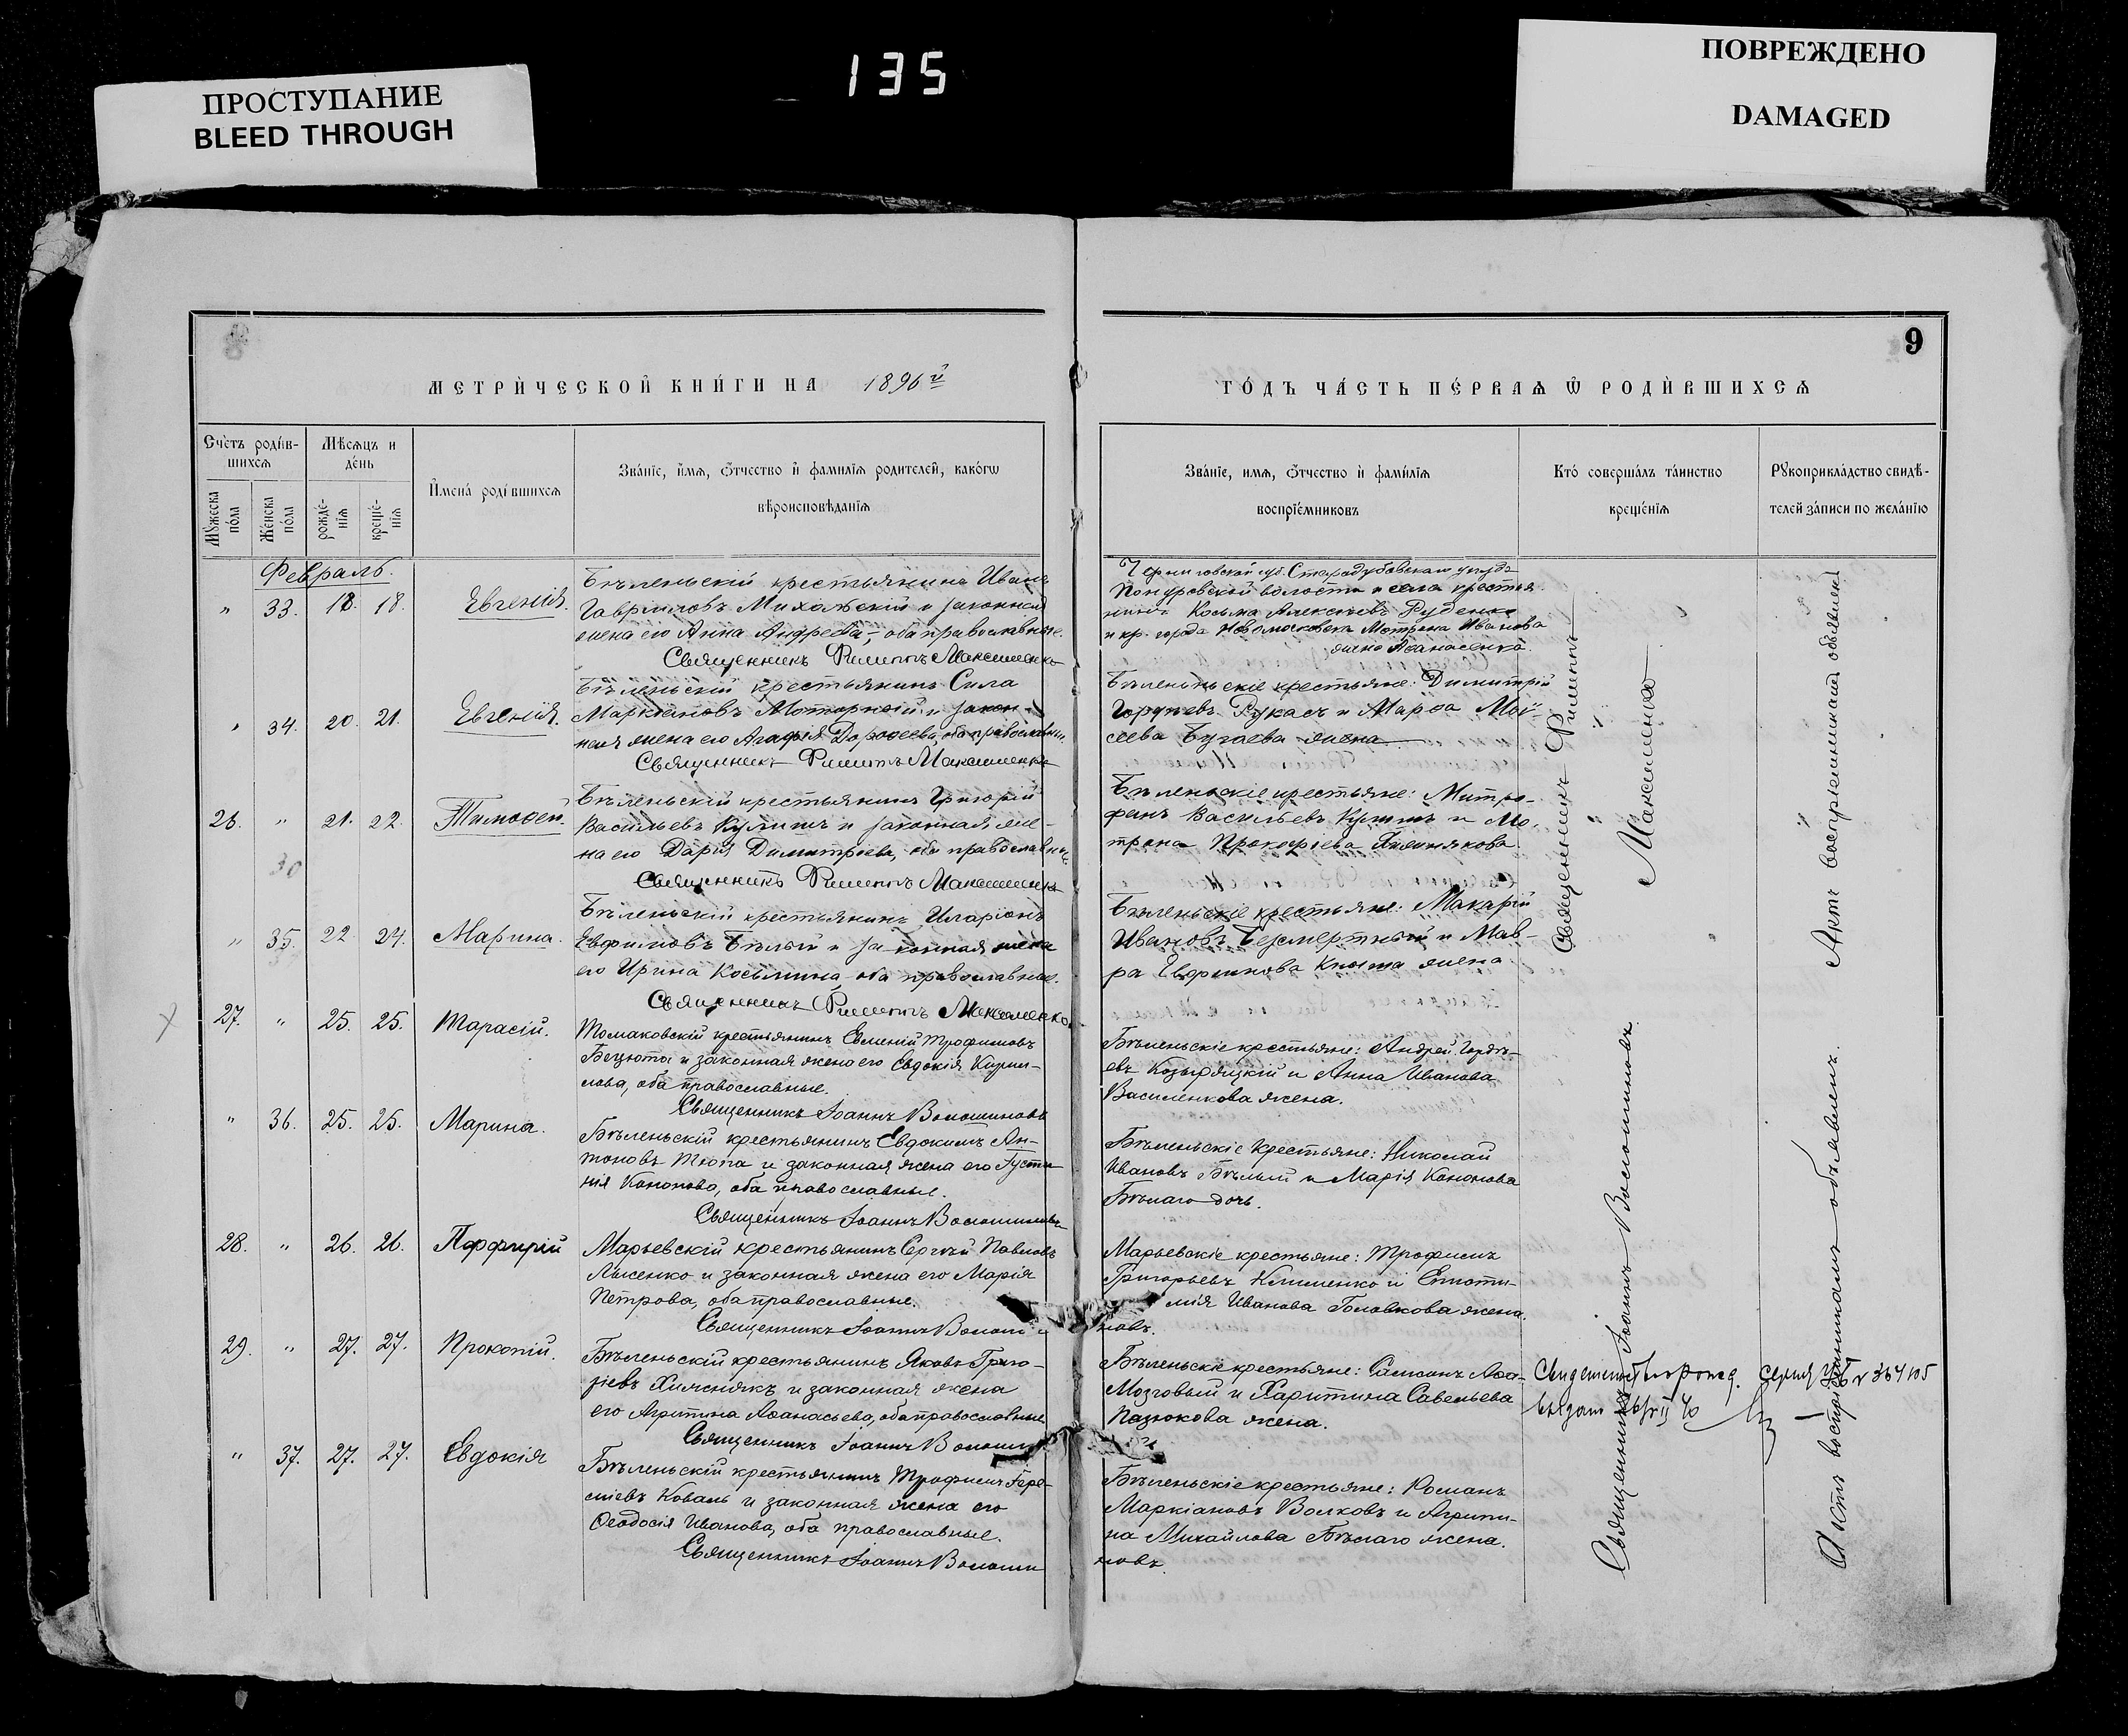 135
ПРОСТУПАНИЕ
BLEED THROUGH
ПОВРЕЖДЕНО
DAMAGED
9
МЕТРИ́ЧЕСКОЙ КНИ́ГИ НА 1896й
ГО́ДЪ ЧА́СТЬ ПЕ́РВАѦ Ѡ РОДИ́ВШИХСѦ
Счетъ роди́вшихсѧ
Мѣсѧцъ и де́нь
Имена́ роди́вшихсѧ
Зва́нїе, и́мѧ, ѻ́тчество и҆ фамилїѧ родителей, како́гѡ
вѣроисповѣданїѧ
Мꙋжеска по́ла
Же́нска по́ла
рожде́нїѧ
креще́нїѧ
Зва́нїе, имѧ, ѻ́тчество и҆ фами́лїѧ
воспрїе́мниковъ
Кто́ соверша́лъ та́инство
креще́нїѧ
Рꙋкоприкла́дство свидѣ-
телей за́писи по жела́нїю
Февраль.
" 33. 18. 18. Евгенія.
Бѣленьскій крестьянинъ Иванъ
Гавриловъ Михальскій и законная
жена его Анна Андреева, оба православные.
Священникъ Филиппъ Максименко
Черниговской губ. Стародубовскаго уѣзда
Понуровской волости и села крестья
нинъ Косьма Алексѣевъ Руденко
и кр. города Новомосковска Мотрена Иванова
жена Аѳанасенко.
" 34. 20. 21. Евгенія.
Бѣленьскій крестьянинъ Сила
Маркіановъ Моторный и закон-
ная жена его Агафія Дороѳеева, оба православные.
Священникъ Филиппъ Максименко
Бѣленьскіе крестьяне: Димитрій
Рукасъ и Марѳа Мои-
сеева Бугаева жена
26. " 21. 22. Тимоѳей.
30
Бѣленьскій крестьянинъ Григорій
Васильевъ Кулишъ и законная же-
на его Дарія Димитріева, оба православные.
Священникъ Филиппъ Максименко
Бѣленьскіе крестьяне: Митро-
фанъ Васильевъ Кулишъ и Мо-
трона Прокофіева
" 35. 22. 24. Марина.
Бѣленьскій крестьянинъ Иларіонъ
Евфимовъ Бѣлый и законная жена
его Ирина Косьмина, оба православные.
Священникъ Филиппъ Максименко
Бѣленьскіе крестьяне: Макарій
Ивановъ Безсмертный и Мав-
ра Евфимова жена
27. " 25. 25. Тарасій.
Томаковскій крестьянинъ Евменій Трофимовъ
Бецюта и законная жена его Евдокія Кирил-
лова, оба православные.
Священникъ Іоаннъ Волошиновъ
Бѣленьскіе крестьяне: Андрей Гордѣ-
евъ Козыряцкій и Анна Иванова
Василенкова жена.
" 36. 25. 25. Марина.
Бѣленьскій крестьянинъ Евдокимъ Ан-
тоновъ Тюпа и законная жена его Густи-
нія Кононова, оба православные.
Священникъ Іоаннъ Волошиновъ
Бѣленьскіе крестьяне: Николай
Ивановъ Бѣлый и Марія Кононова
Бѣлаго дочь.
28. " 26. 26. Порфирій
Марьевскій крестьянинъ Сергѣй Павловъ
Лысенко и законная жена его Марія
Петрова, оба православные.
Священникъ Іоаннъ Волоши
новъ.
Марьевскіе крестьяне: Трофимъ
Григорьевъ Клименко и Еписти-
мія Иванова Головкова жена.
29. " 27. 27. Прокопій.
Бѣленьскій крестьянинъ Яковъ Григо-
ріевъ Химченякъ и законная жена
его Агрипина Аѳанасьева, оба православные
Священникъ Іоаннъ Волоши
Бѣленьскіе крестьяне: Самсонъ
Мозговый и Харитина Савельева
Пазюкова жена.
Свидетельство о рожд. серия 364105
выдано
" 37. 27. 27. Евдокія
Бѣленьскій крестьянинъ Трофимъ Іере-
міевъ Коваль и законная жена его
Ѳеодосія Иванова, оба православные.
Священникъ Іоаннъ Волоши
новъ
Бѣленьскіе крестьяне: Романъ
Маркіановъ Волковъ и Агрипи-
на Михайлова Бѣлаго жена.
Священникъ Филиппъ
Максименко
Священникъ Іоаннъ Волошиновъ
Актъ воспріемникамъ объявленъ
Актъ воспріемникамъ объявленъ.